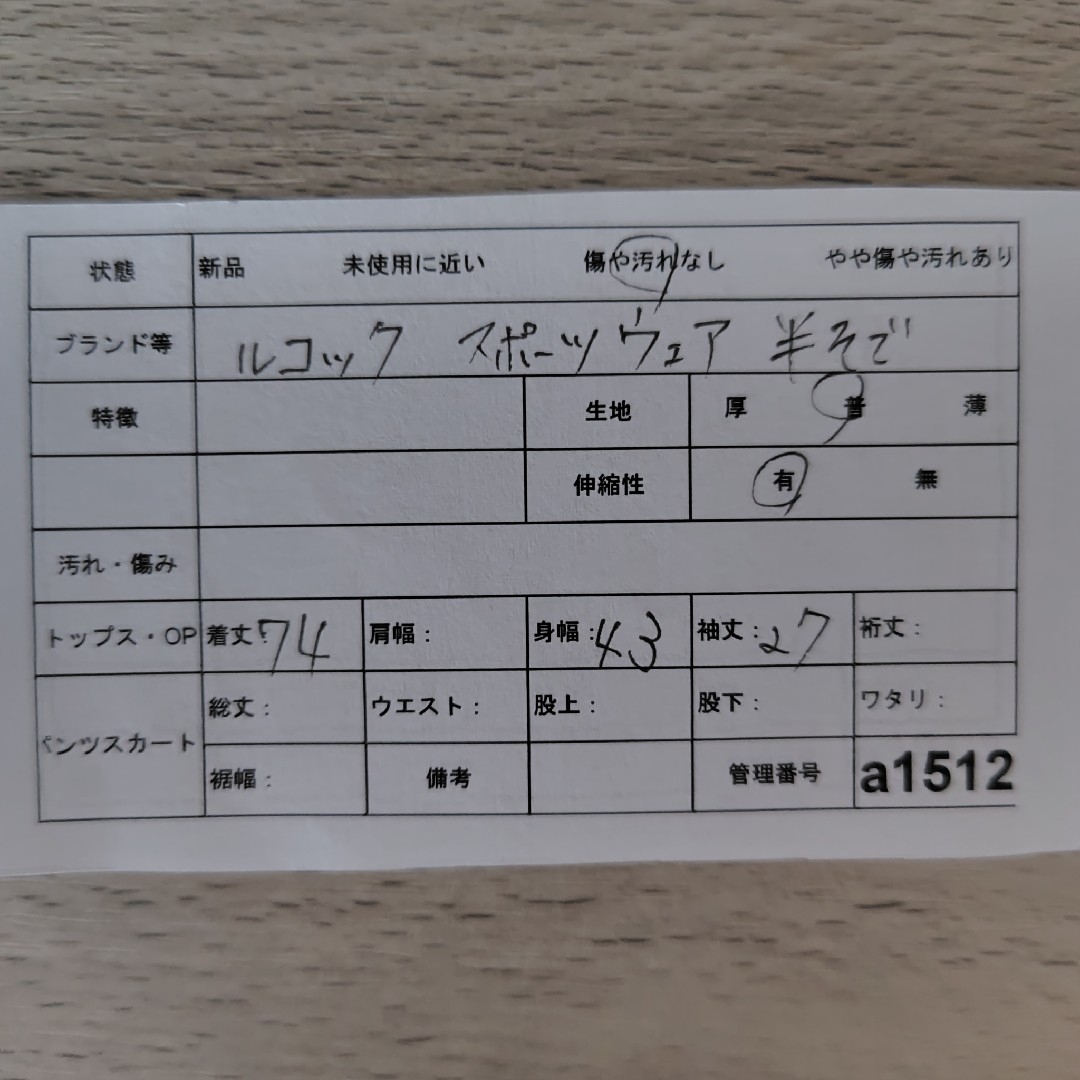 状態 新品 未使用に近い 傷や汚れなし やや傷や汚れあり
ブランド等 ルコック スポーツウェア 半そで
特徴 生地 厚 普 薄
伸縮性 有 無
汚れ・傷み
トップス・OP 着丈:74 肩幅: 身幅:43 袖丈:27 裄丈:
パンツスカート 総丈: ウエスト: 股上: 股下: ワタリ:
裾幅: 備考 管理番号 a1512